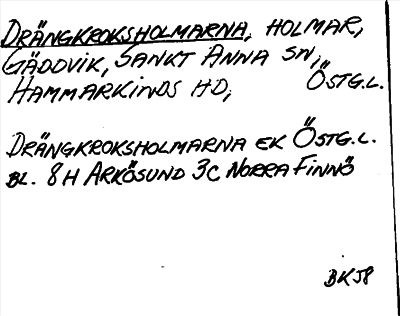 DRÄNGKROKSHOLMARNA, HOLMAR,
GÄDDVIK, SANKT ANNA SN,
HAMMARKINDS HD, ÖSTG.L.
DRÄNGKROKSHOLMARNA EK ÖSTG.L.
BL. 8H ARKÖSUND 3C NORRA FINNÖ
BK58